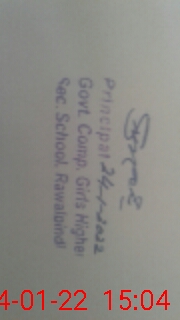 Principal 24-1-2022
Govt. Comp. Girls Higher
Sec. School, Rawalpindi
4-01-22 15:04